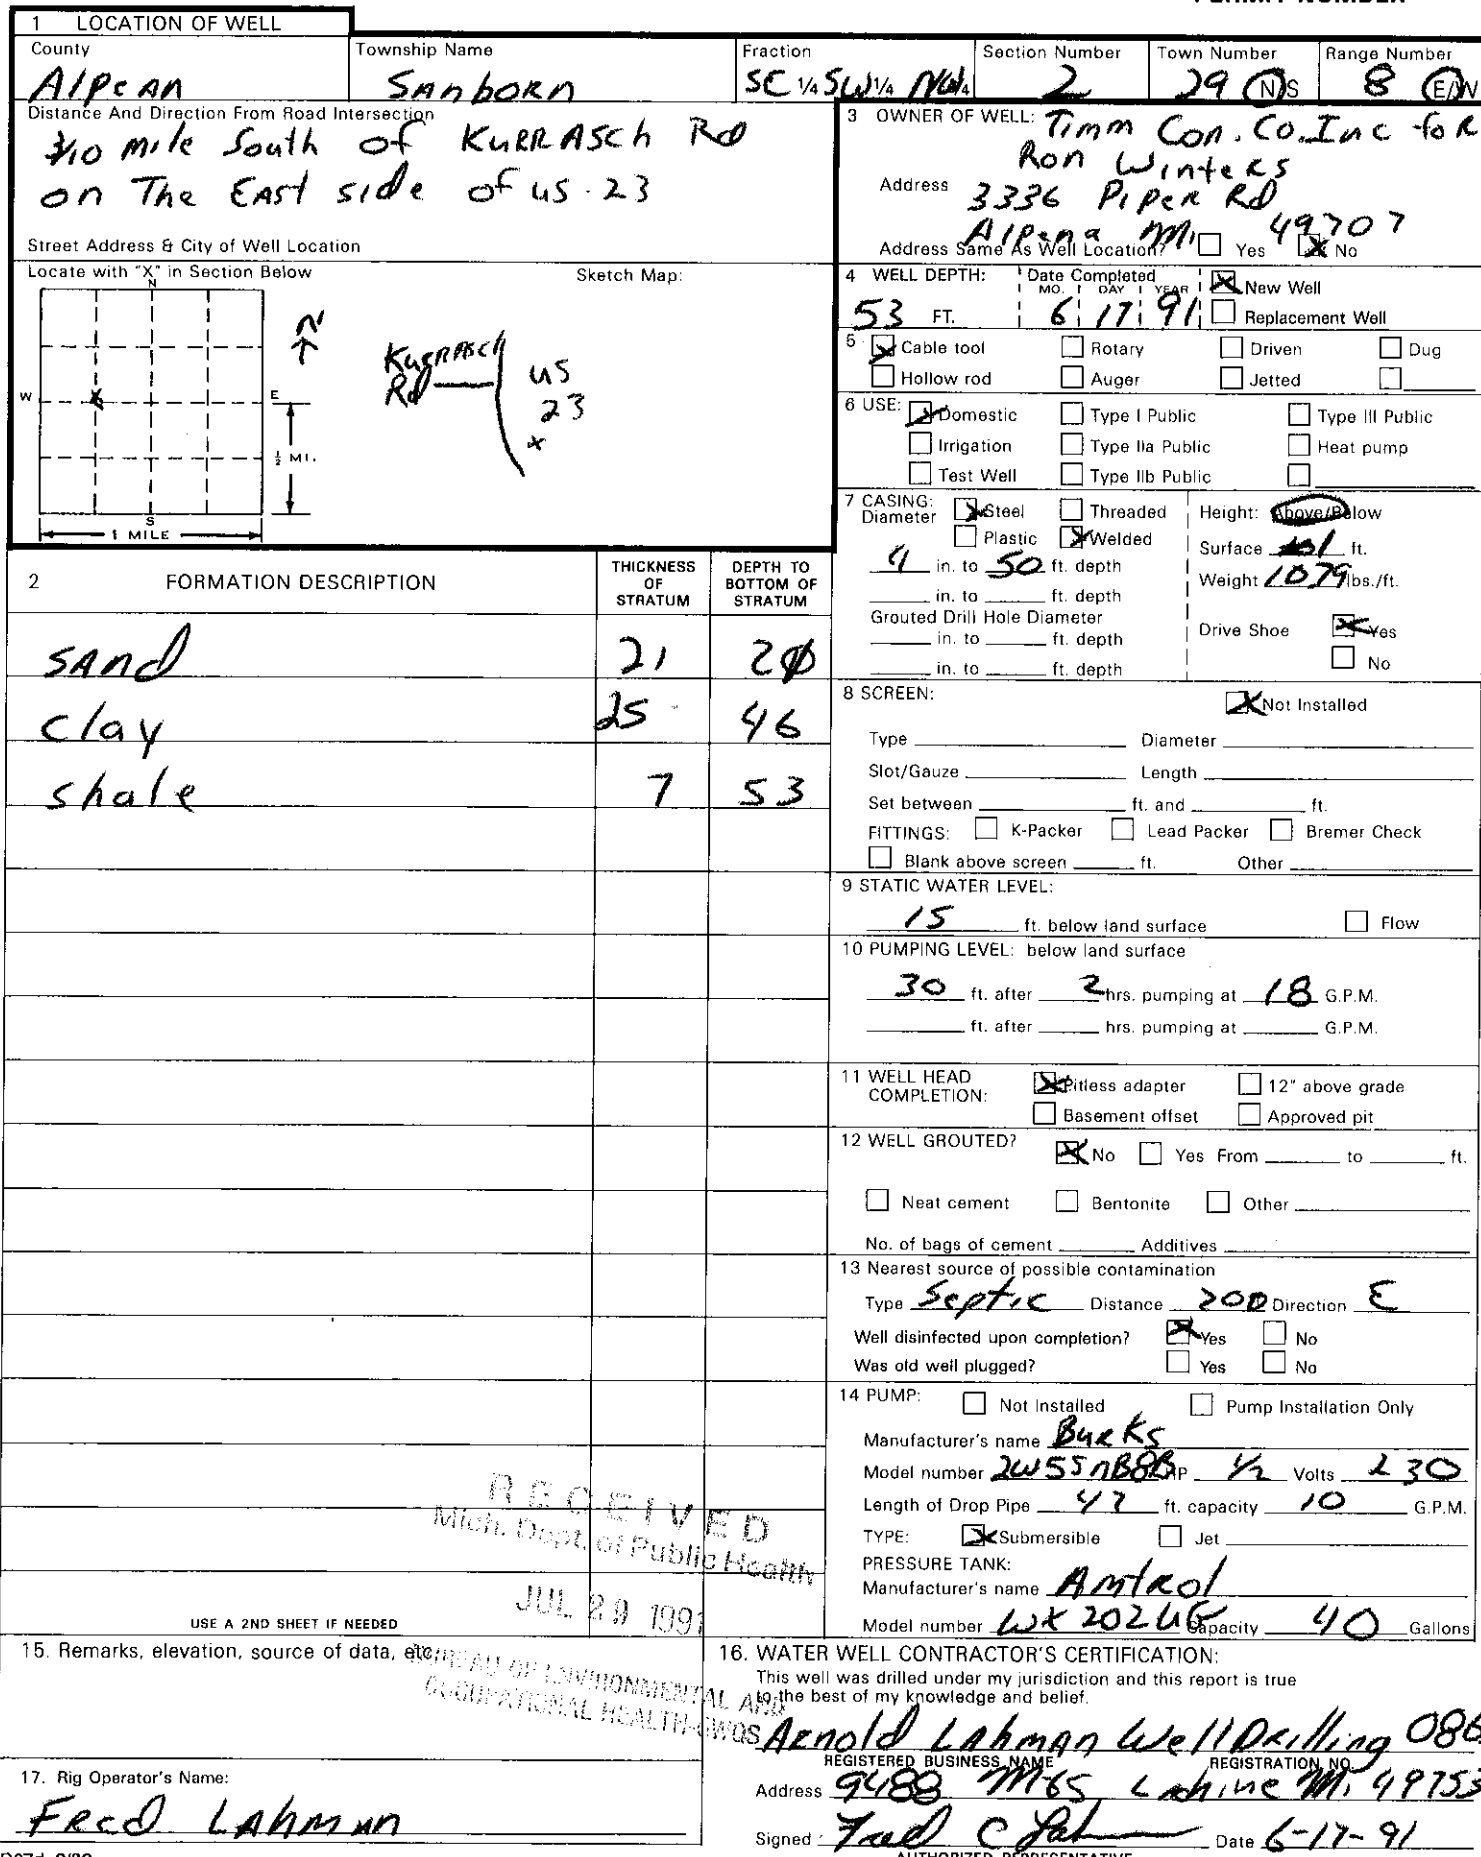 1 LOCATION OF WELL
County
Alpean
Township Name
Sanborn
Fraction
SE 1/4 SW 1/4 NW 1/4
Section Number
2
Town Number
29 N/S
Range Number
8 E/W
Distance And Direction From Road Intersection
3/10 mile South of Kurrasch Rd
on The East side of us. 23
Street Address & City of Well Location
Locate with "X" in Section Below
N
W
E
S
1/2 MI.
1 MILE
N
X
Sketch Map:
Kurrasch
Rd
US
23
x
3 OWNER OF WELL: Timm Con. Co. Inc for
Ron Winters
Address 3336 Piper Rd
Alpena Mi 49707
Address Same As Well Location? Yes X No
4 WELL DEPTH:
53 FT.
Date Completed
MO. DAY YEAR
6 17 91
X New Well
Replacement Well
5 X Cable tool Rotary Driven Dug
Hollow rod Auger Jetted
6 USE: X Domestic Type I Public Type III Public
Irrigation Type IIa Public Heat pump
Test Well Type IIb Public
7 CASING: X Steel Threaded
Diameter Plastic X Welded
4 in. to 50 ft. depth
in. to ft. depth
Grouted Drill Hole Diameter
in. to ft. depth
in. to ft. depth
Height: Above/Below
Surface 1 ft.
Weight 10.79 lbs./ft.
Drive Shoe X Yes
No
2 FORMATION DESCRIPTION
THICKNESS OF STRATUM
DEPTH TO BOTTOM OF STRATUM
sand 21 20
clay 25 46
shale 7 53
8 SCREEN: X Not Installed
Type Diameter
Slot/Gauze Length
Set between ft. and ft.
FITTINGS: K-Packer Lead Packer Bremer Check
Blank above screen ft. Other
9 STATIC WATER LEVEL:
15 ft. below land surface Flow
10 PUMPING LEVEL: below land surface
30 ft. after 2 hrs. pumping at 18 G.P.M.
ft. after hrs. pumping at G.P.M.
11 WELL HEAD COMPLETION: X Pitless adapter 12" above grade
Basement offset Approved pit
12 WELL GROUTED? X No Yes From to ft.
Neat cement Bentonite Other
No. of bags of cement Additives
13 Nearest source of possible contamination
Type Septic Distance 200 Direction E
Well disinfected upon completion? X Yes No
Was old well plugged? Yes No
14 PUMP: Not Installed Pump Installation Only
Manufacturer's name Burks
Model number HP 1/2 Volts 230
Length of Drop Pipe 47 ft. capacity 10 G.P.M.
TYPE: X Submersible Jet
PRESSURE TANK:
Manufacturer's name Amtrol
Model number WX 202 UG Capacity 40 Gallons
RECEIVED
Mich. Dept. of Public Health
JUL 29 1991
BUREAU OF ENVIRONMENTAL AND
OCCUPATIONAL HEALTH-GWQS
USE A 2ND SHEET IF NEEDED
15. Remarks, elevation, source of data, etc.
16. WATER WELL CONTRACTOR'S CERTIFICATION:
This well was drilled under my jurisdiction and this report is true
to the best of my knowledge and belief.
Arnold Lahman Well Drilling 086
REGISTERED BUSINESS NAME REGISTRATION NO.
Address 9488 M-65 Lachine Mi 49753
17. Rig Operator's Name:
Fred Lahman
Signed Fred C Lah Date 6-17-91
AUTHORIZED REPRESENTATIVE